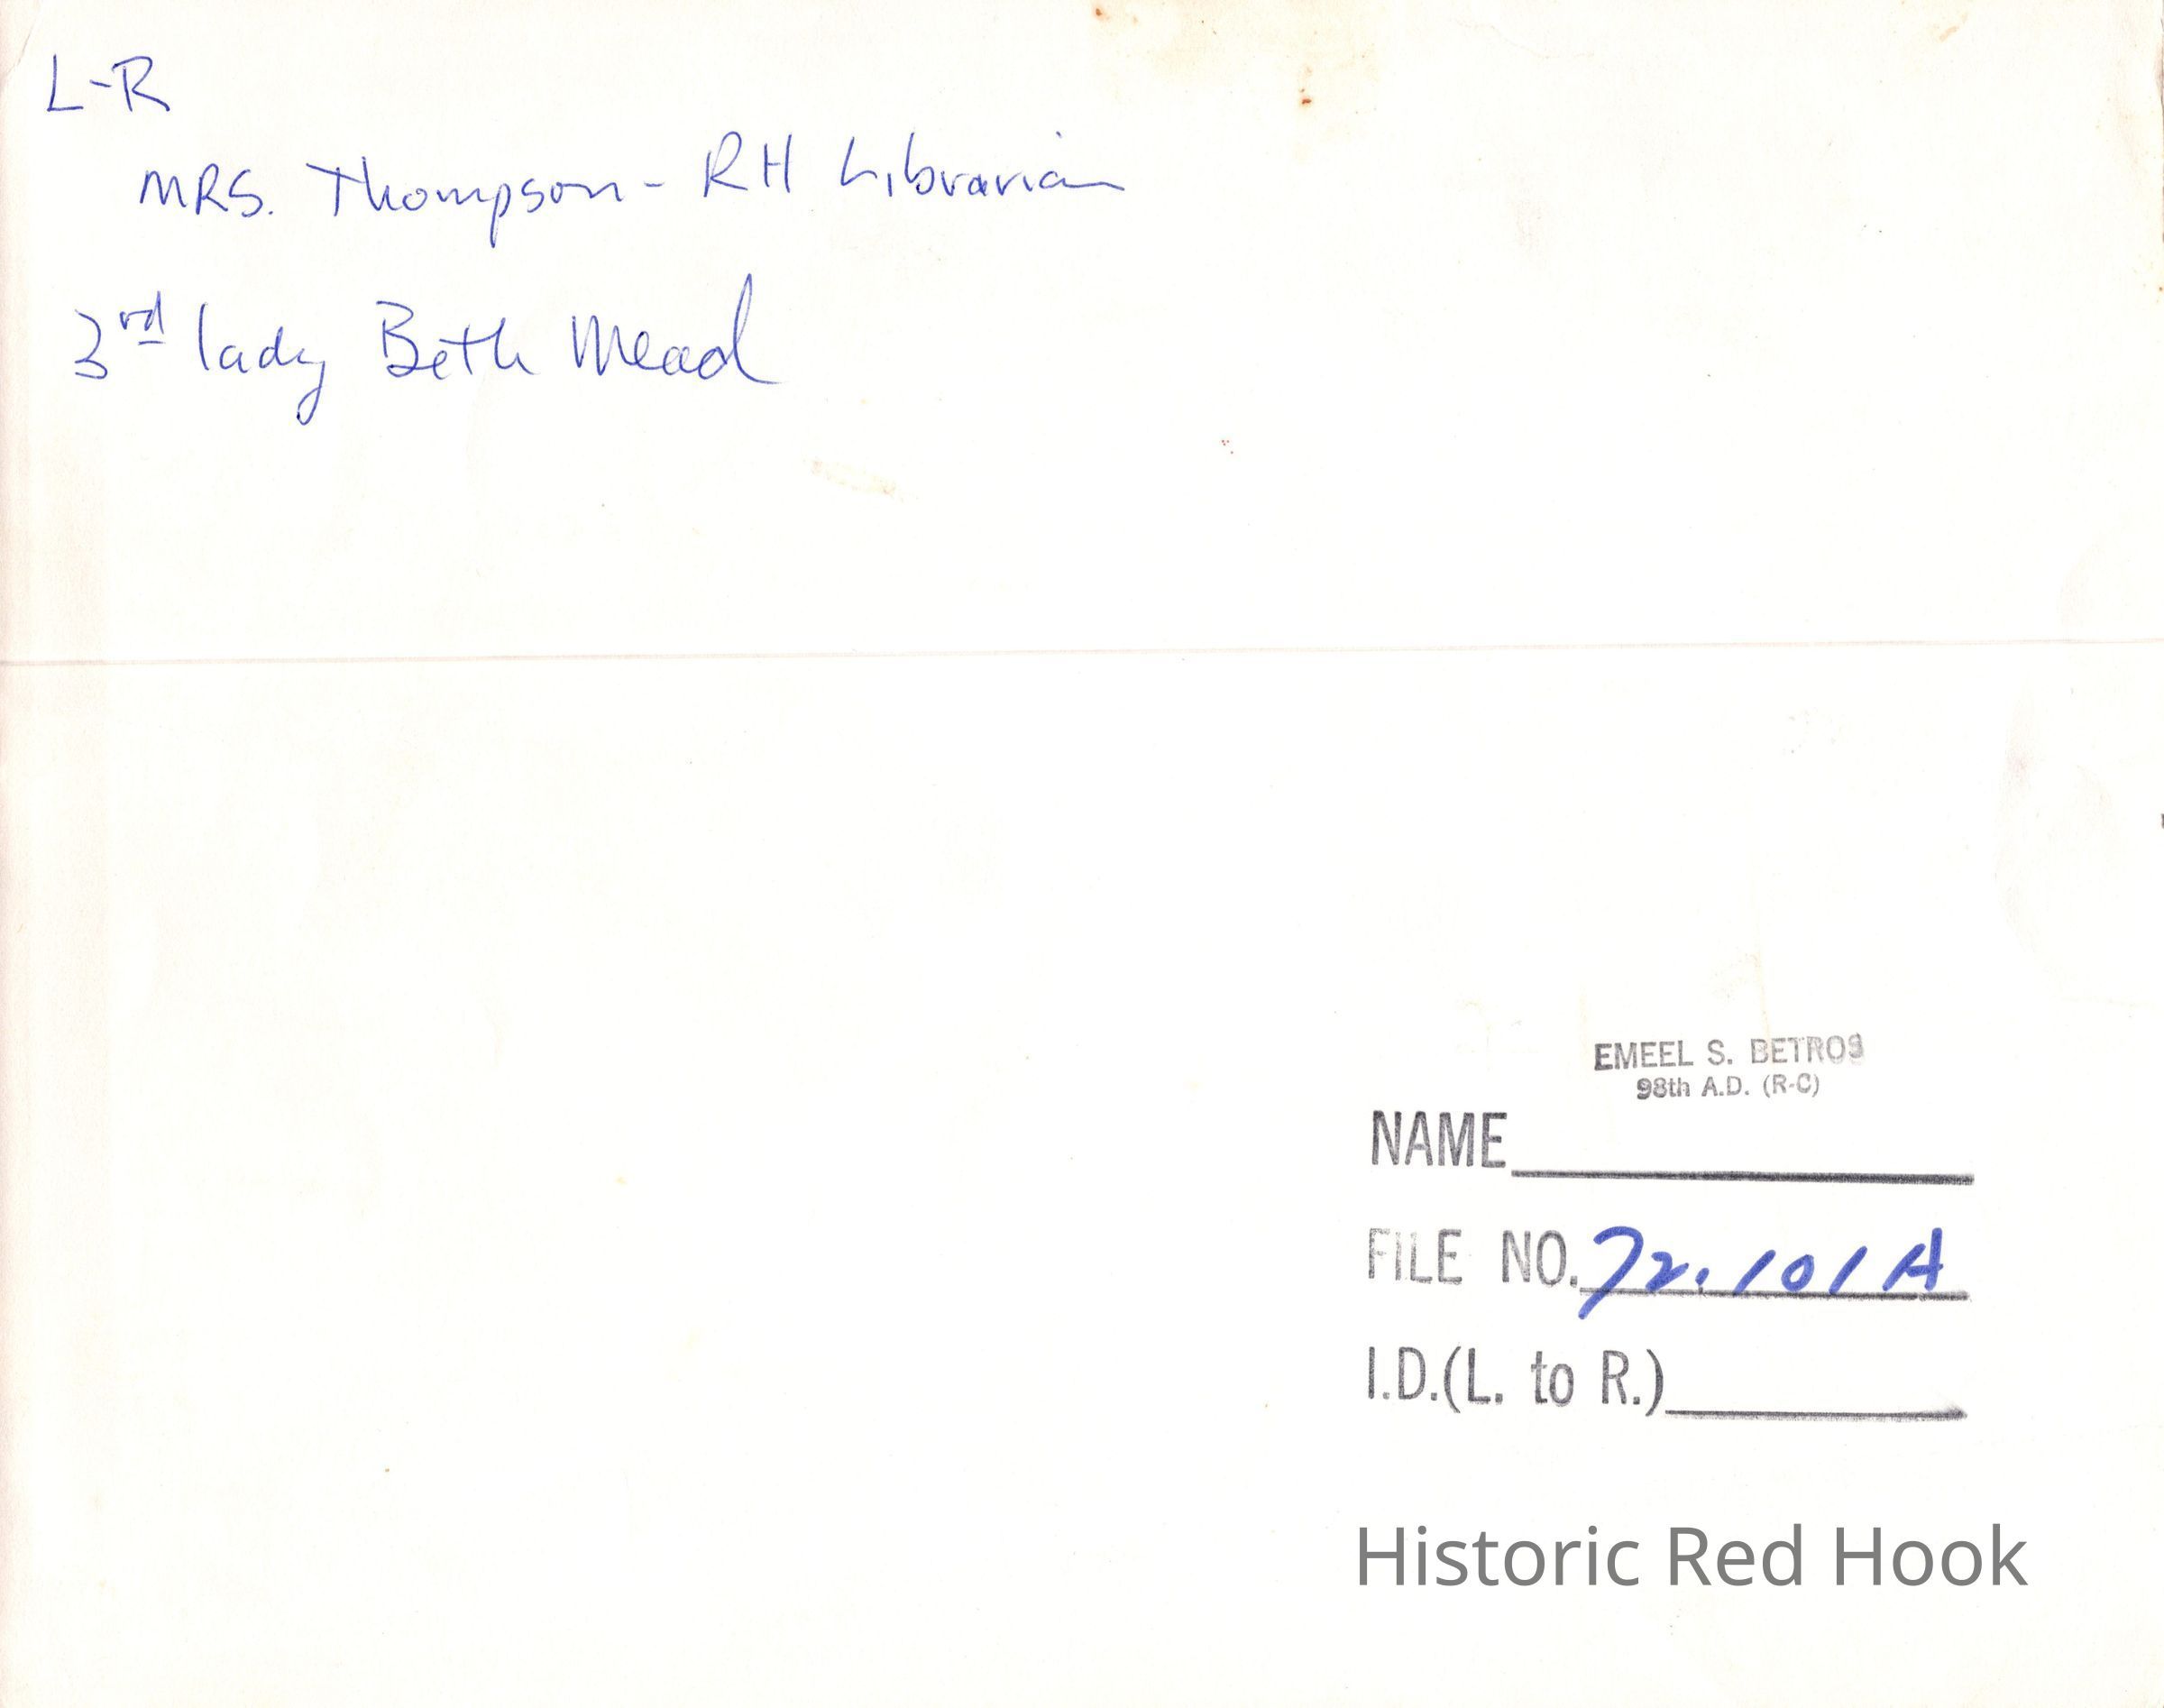 L-R
MRS. Thompson - RH Librarian
3rd lady Beth Mead
EMEEL S. BETROS
98th A.D. (R-C)
NAME
FILE NO. 72.101A
I.D.(L. to R.)
Historic Red Hook